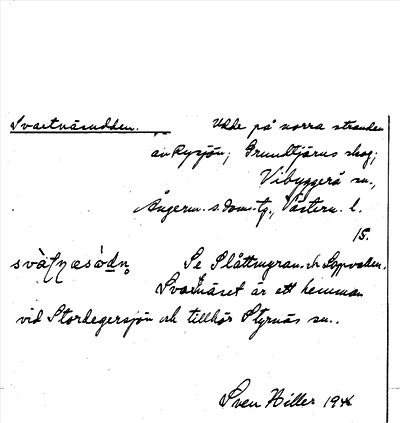 Svartnäsudden. Udde på norra stranden
av Rysjön; Grundtjärns skog;
Vibyggerå sn.,
Ångerm. s. doms-tg., Västern. l.
15.
Se Slåttmyran. och
Svartnäset är ett hemman
vid Stordegersjön och tillhör Styrnäs sn..
Sven Hiller 194